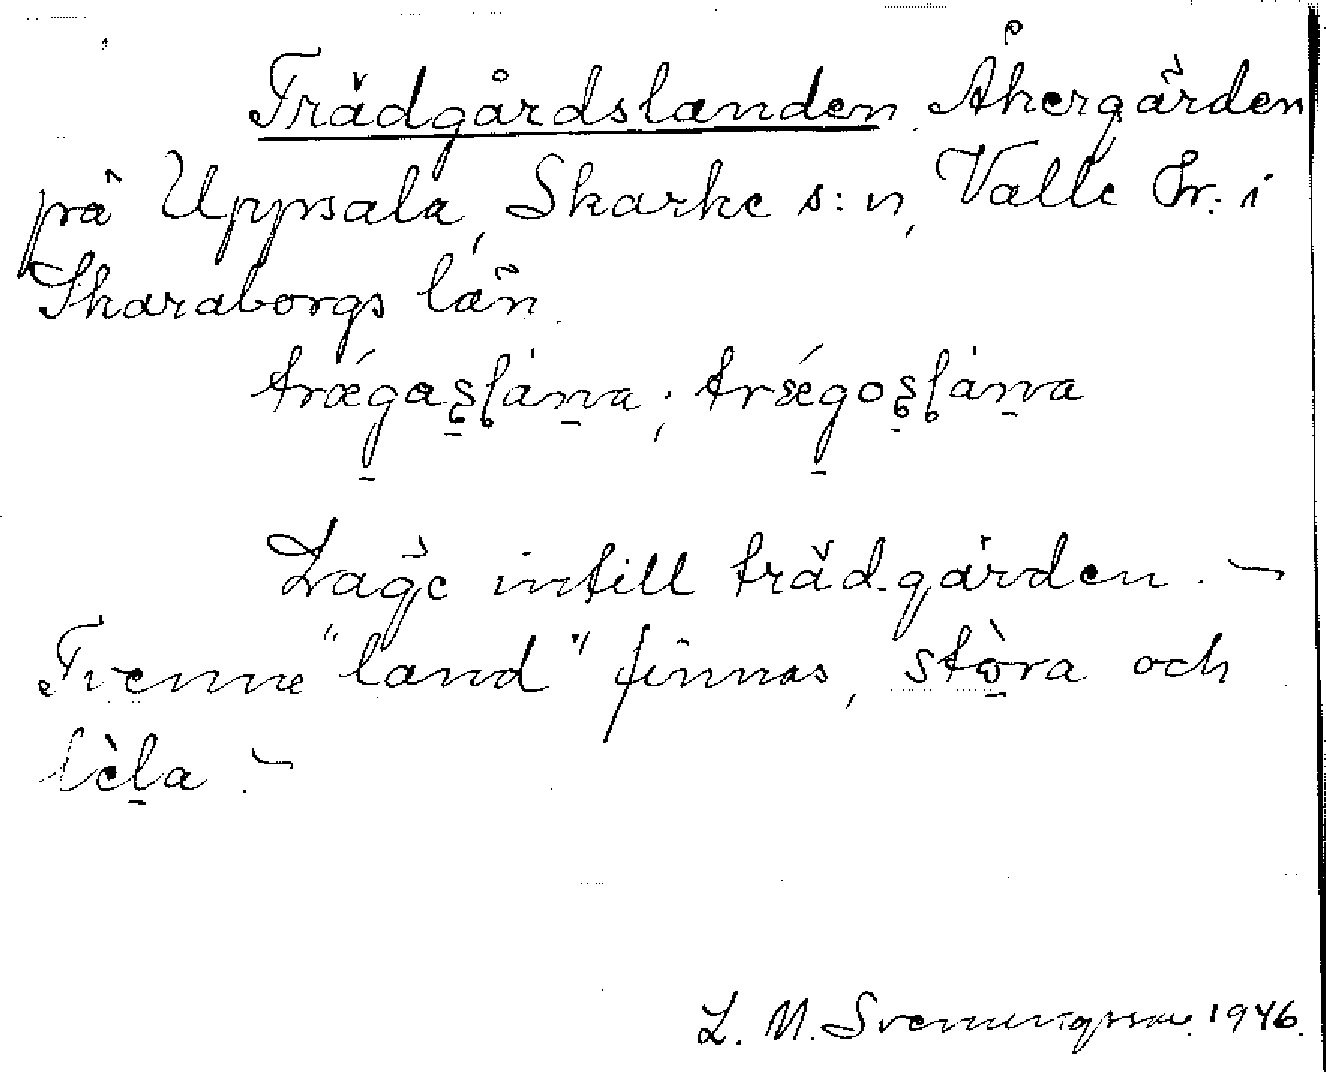 Trädgårdslanden. Åkergärden
på Uppsala, Skarke s:n, Valle Hr. i
Skaraborgs län.
trǽgaʂl̥áṉa; trǽgoʂl̥áṉa
Låge intill trädgården. –
Tvenne "land" finnas, stòra och
lèl̠a. –
L. M. Svenungsson 1946.